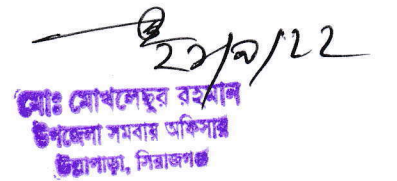 ২৯/৯/২২
মোঃ মোখলেছুর রহমান
উপজেলা সমবায় অফিসার
উল্লাপাড়া, সিরাজগঞ্জ